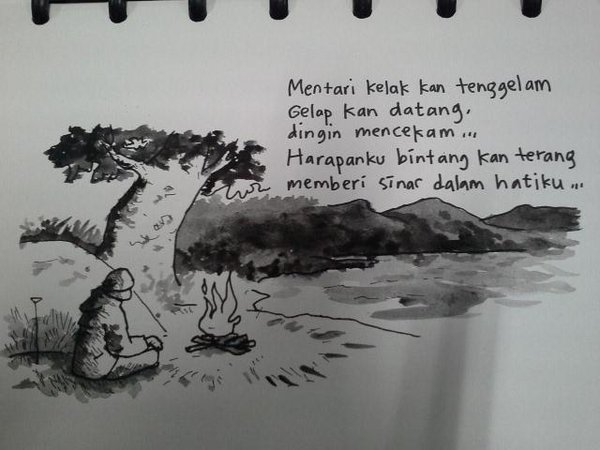 Mentari kelak kan tenggelam
Gelap kan datang,
dingin mencekam...
Harapanku bintang kan terang
memberi sinar dalam hatiku...